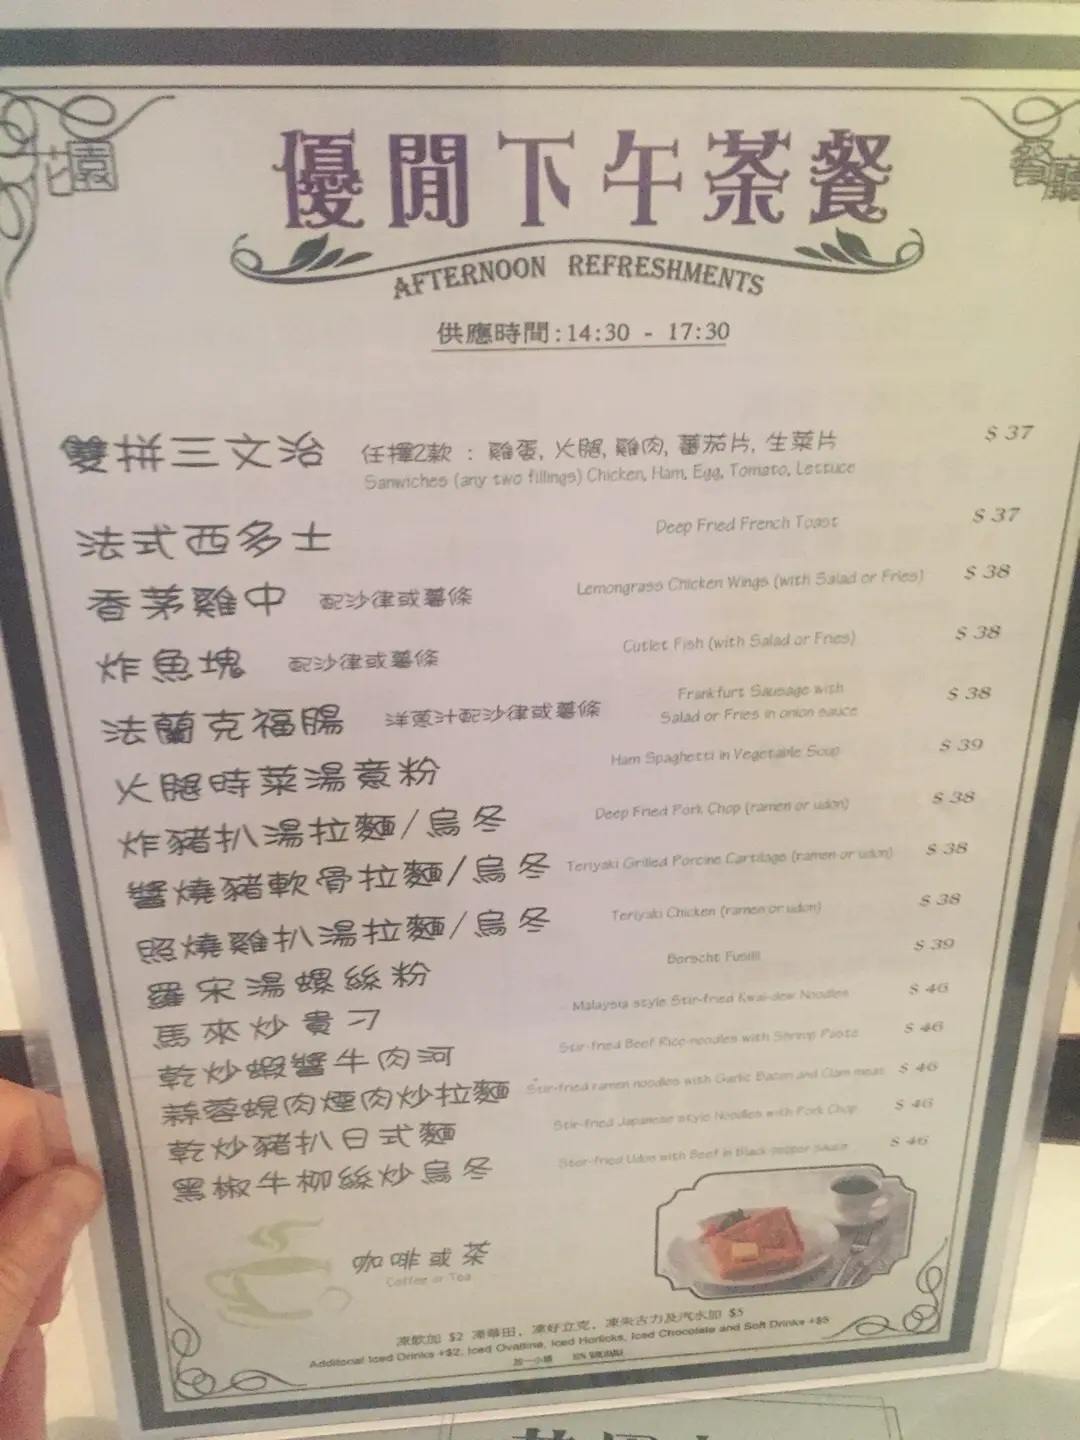 花園
餐廳
優閒下午茶餐
AFTERNOON REFRESHMENTS
供應時間:14:30 - 17:30
雙拼三文治 任擇2款 : 雞蛋, 火腿, 雞肉, 蕃茄片, 生菜片 $ 37
Sanwiches (any two fillings) Chicken, Ham, Egg, Tomato, Lettuce
法式西多士 Deep Fried French Toast $ 37
香茅雞中 配沙律或薯條 Lemongrass Chicken Wings (with Salad or Fries) $ 38
炸魚塊 配沙律或薯條 Cutlet Fish (with Salad or Fries) $ 38
法蘭克福腸 洋蔥汁配沙律或薯條 Frankfurt Sausage with $ 38
Salad or Fries in onion sauce
火腿時菜湯意粉 Ham Spaghetti in Vegetable Soup $ 39
炸豬扒湯拉麵/烏冬 Deep Fried Pork Chop (ramen or udon) $ 38
醬燒豬軟骨拉麵/烏冬 Teriyaki Grilled Porcine Cartilage (ramen or udon) $ 38
照燒雞扒湯拉麵/烏冬 Teriyaki Chicken (ramen or udon) $ 38
羅宋湯螺絲粉 Borscht Fusilli $ 39
馬來炒貴刁 Malaysia style Stir-fried Kwai-dew Noodles $ 46
乾炒蝦醬牛肉河 Stir-fried Beef Rice-noodles with Shrimp Paste $ 46
蒜蓉蜆肉煙肉炒拉麵 Stir-fried ramen noodles with Garlic Bacon and Clam meat $ 46
乾炒豬扒日式麵 Stir-fried Japanese style Noodles with Pork Chop $ 46
黑椒牛柳絲炒烏冬 Stir-fried Udon with Beef in Black pepper sauce $ 46
咖啡或茶
Coffee or Tea
凍飲加 $2 凍華田, 凍好立克, 凍朱古力及汽水加 $5
Additional Iced Drinks +$2, Iced Ovaltine, Iced Horlicks, Iced Chocolate and Soft Drinks +$5
加一小賬